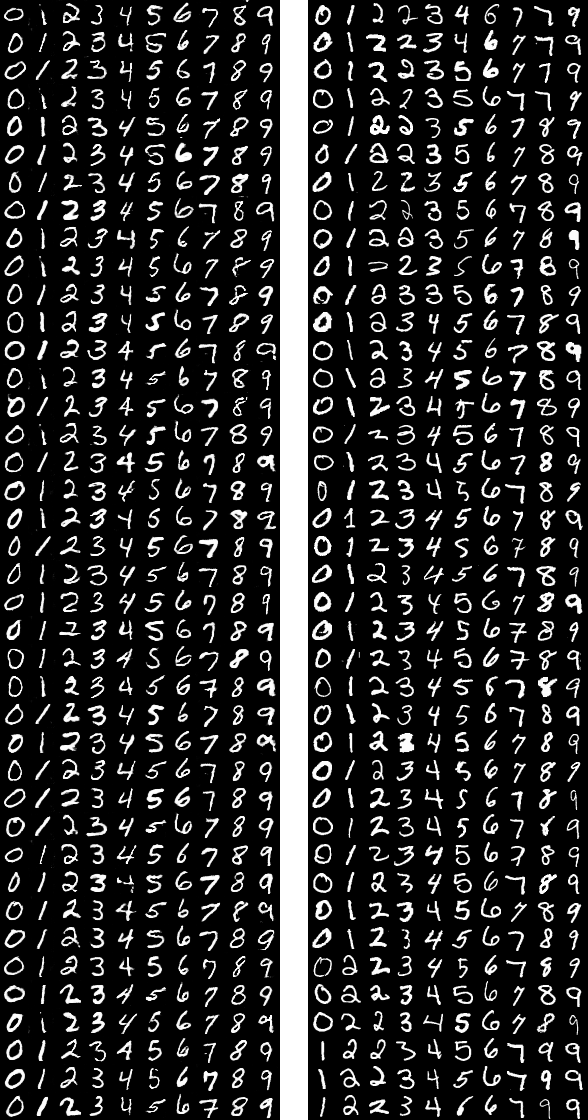 0 1 2 3 4 5 6 7 8 9
0 1 2 3 4 5 6 7 8 9
0 1 2 3 4 5 6 7 8 9
0 1 2 3 4 5 6 7 8 9
0 1 2 3 4 5 6 7 8 9
0 1 2 3 4 5 6 7 8 9
0 1 2 3 4 5 6 7 8 9
0 1 2 3 4 5 6 7 8 9
0 1 2 3 4 5 6 7 8 9
0 1 2 3 4 5 6 7 8 9
0 1 2 3 4 5 6 7 8 9
0 1 2 3 4 5 6 7 8 9
0 1 2 3 4 5 6 7 8 9
0 1 2 3 4 5 6 7 8 9
0 1 2 3 4 5 6 7 8 9
0 1 2 3 4 5 6 7 8 9
0 1 2 3 4 5 6 7 8 9
0 1 2 3 4 5 6 7 8 9
0 1 2 3 4 5 6 7 8 9
0 1 2 3 4 5 6 7 8 9
0 1 2 3 4 5 6 7 8 9
0 1 2 3 4 5 6 7 8 9
0 1 2 3 4 5 6 7 8 9
0 1 2 3 4 5 6 7 8 9
0 1 2 3 4 5 6 7 8 9
0 1 2 3 4 5 6 7 8 9
0 1 2 3 4 5 6 7 8 9
0 1 2 3 4 5 6 7 8 9
0 1 2 3 4 5 6 7 8 9
0 1 2 3 4 5 6 7 8 9
0 1 2 3 4 5 6 7 8 9
0 1 2 3 4 5 6 7 8 9
0 1 2 3 4 5 6 7 8 9
0 1 2 3 4 5 6 7 8 9
0 1 2 3 4 5 6 7 8 9
0 1 2 3 4 5 6 7 8 9
0 1 2 3 4 5 6 7 8 9
0 1 2 3 4 5 6 7 8 9
0 1 2 3 4 5 6 7 8 9
0 1 2 3 4 5 6 7 8 9
0 1 2 2 3 4 6 7 7 9
0 1 2 2 3 4 6 7 7 9
0 1 2 2 3 5 6 7 7 9
0 1 2 2 3 5 6 7 7 9
0 1 2 2 3 5 6 7 8 9
0 1 2 2 3 5 6 7 8 9
0 1 2 2 3 5 6 7 8 9
0 1 2 2 3 5 6 7 8 9
0 1 2 2 3 5 6 7 8 9
0 1 2 2 3 5 6 7 8 9
0 1 2 3 3 5 6 7 8 9
0 1 2 3 4 5 6 7 8 9
0 1 2 3 4 5 6 7 8 9
0 1 2 3 4 5 6 7 8 9
0 1 2 3 4 5 6 7 8 9
0 1 2 3 4 5 6 7 8 9
0 1 2 3 4 5 6 7 8 9
0 1 2 3 4 5 6 7 8 9
0 1 2 3 4 5 6 7 8 0
0 1 2 3 4 5 6 7 8 9
0 1 2 3 4 5 6 7 8 9
0 1 2 3 4 5 6 7 8 9
0 1 2 3 4 5 6 7 8 9
0 1 2 3 4 5 6 7 8 9
0 1 2 3 4 5 6 7 8 9
0 1 2 3 4 5 6 7 8 9
0 1 2 3 4 5 6 7 8 9
0 1 2 3 4 5 6 7 8 9
0 1 2 3 4 5 6 7 8 9
0 1 2 3 4 5 6 7 8 9
0 1 2 3 4 5 6 7 8 9
0 1 2 3 4 5 6 7 8 9
0 1 2 3 4 5 6 7 8 9
0 1 2 3 4 5 6 7 8 9
0 2 2 3 4 5 6 7 8 9
0 2 2 3 4 5 6 7 8 9
0 2 2 3 4 5 6 7 8 9
1 2 2 3 4 5 6 7 9 9
1 2 2 3 4 5 6 7 9 9
1 2 2 3 4 6 6 7 9 9